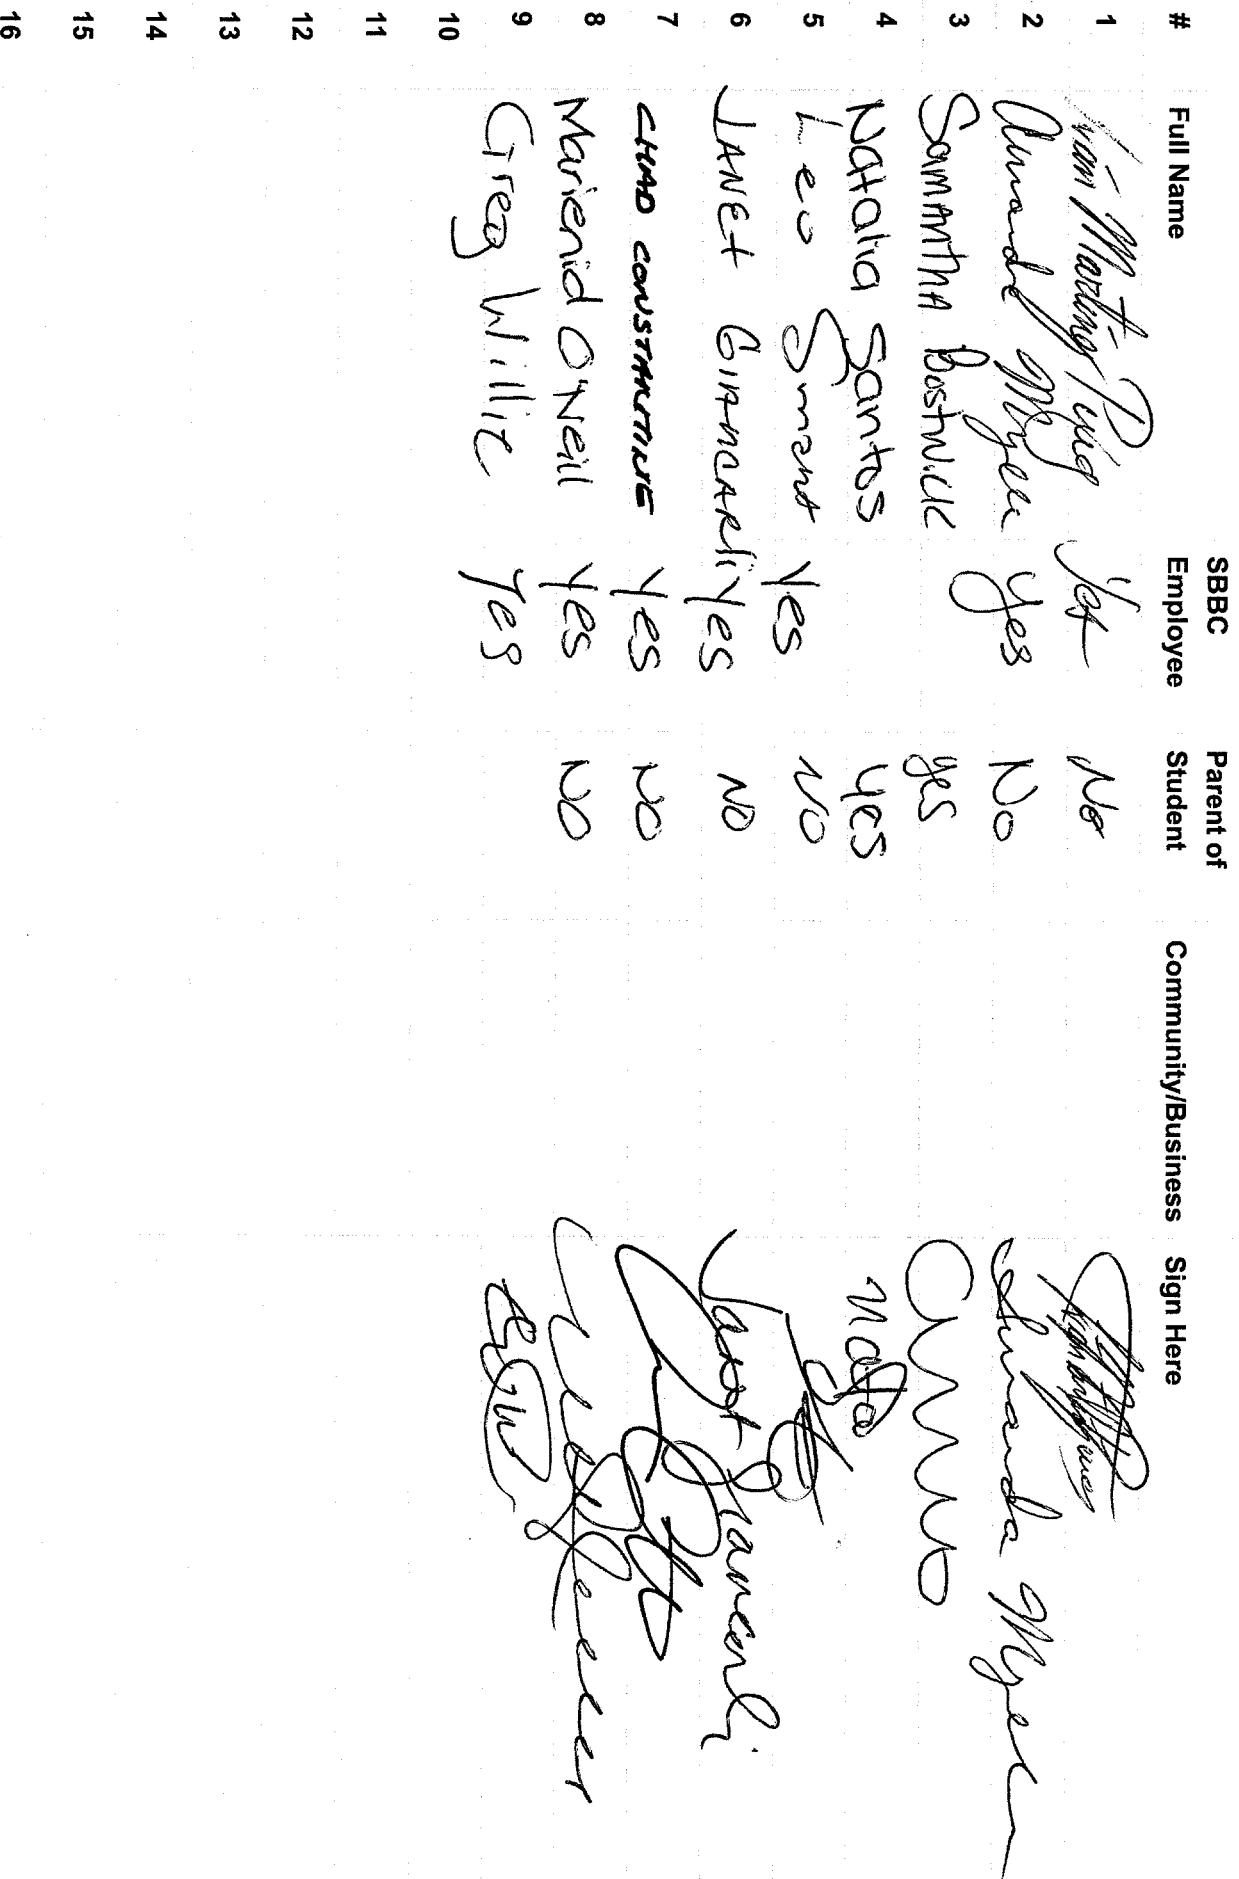 # Full Name SBBC Employee Parent of Student Community/Business Sign Here
1 Martinez Puig Yes No
2 Amanda Myers Yes No Amanda Myers
3 Samantha Bostwick yes
4 Natalia Santos yes
5 Leo Yes NO
6 JANEt GIANCARli Yes NO Janet Giancarli
7 CHAD CONSTANTINE Yes NO
8 Marienid O'Neill Yes NO
9 Greg Willie Yes
10
11
12
13
14
15
16